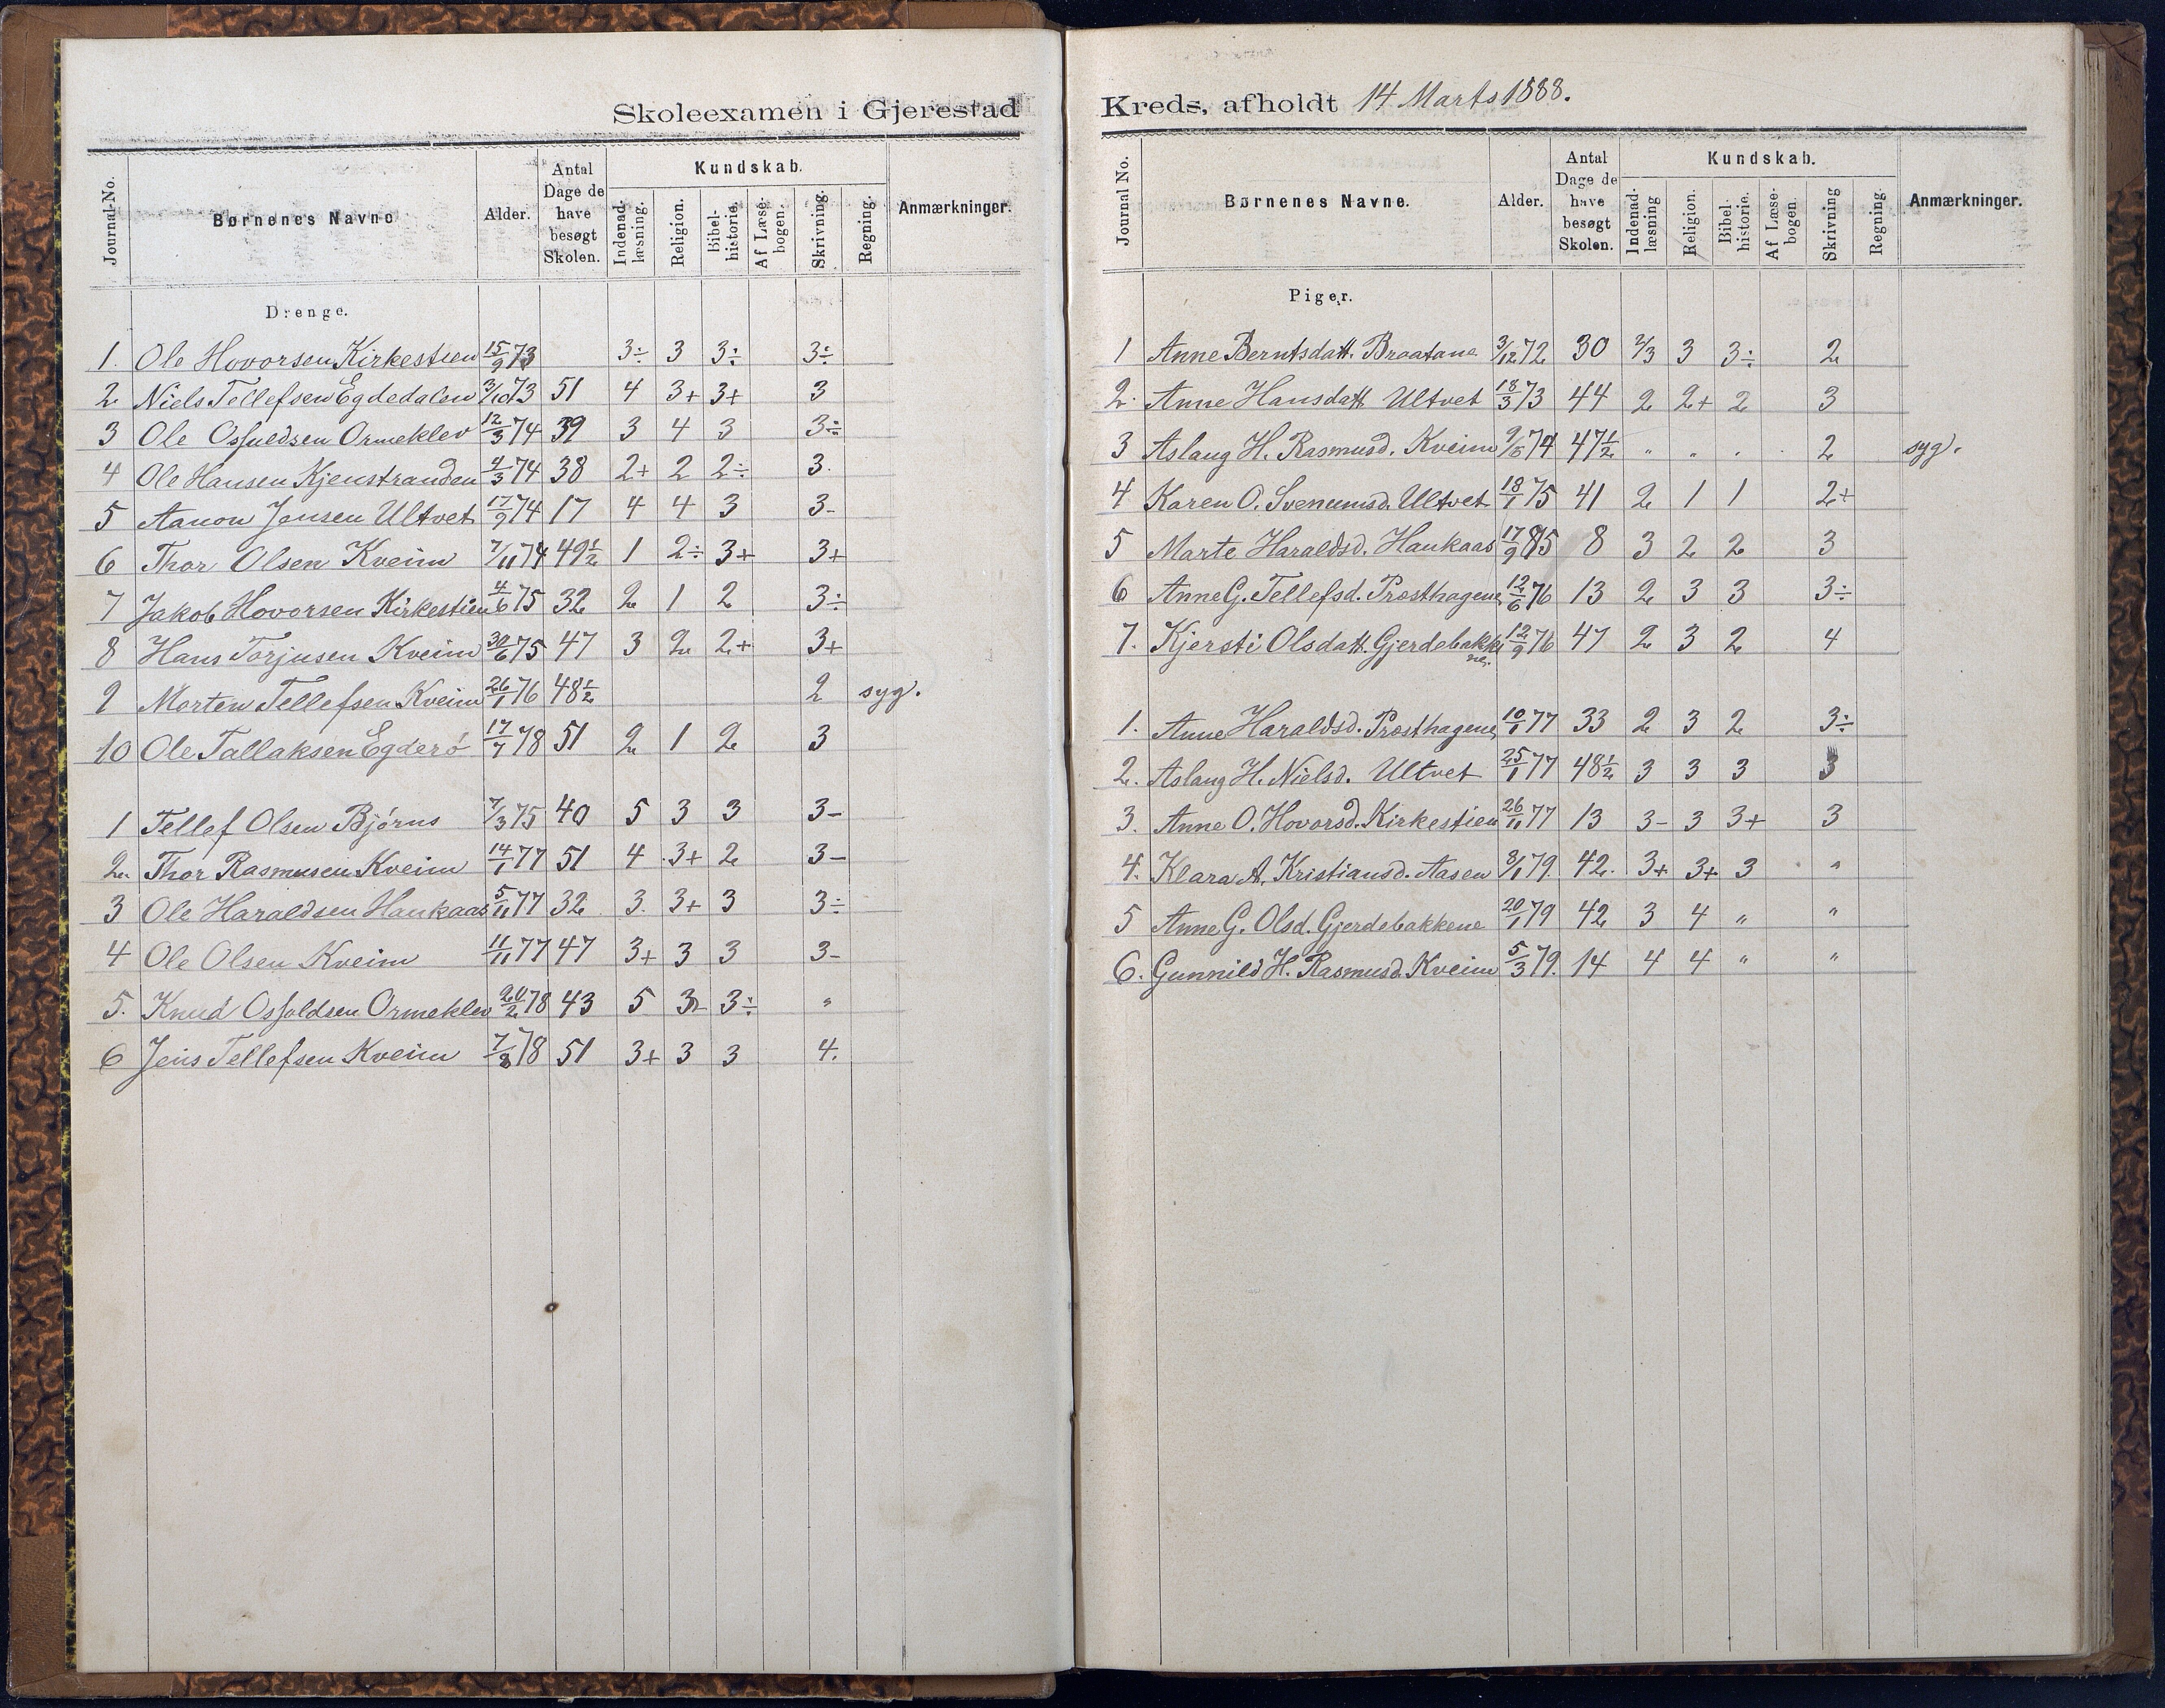 Skoleexamen i Gjerestad
Journal-No. Børnenes Navne Alder. Antal Dage de have besøgt Skolen. Kundskab. Indenad-læsning. Religion. Bibel-historie. Af Læse-bogen. Skrivning. Regning. Anmærkninger.
Drenge.
1. Ole Hovorsen Kirkestien 15/9 73 3÷ 3 3÷ 3÷
2 Niels Tellefsen Egdedalen 3/10 73 51 4 3+ 3+ 3
3 Ole Osfuldsen Ormeklev 12/3 74 39 3 4 3 3÷
4 Ole Hansen Kjenstranden 4/3 74 38 2+ 2 2÷ 3.
5 Aanon Jensen Ultvet 17/9 74 17 4 4 3 3-
6 Thor Olsen Kveim 7/11 74 49½ 1 2÷ 3+ 3+
7 Jakob Hovorsen Kirkestien 4/6 75 32 2 1 2 3÷
8 Hans Torjusen Kveim 30/6 75 47 3 2 2+ 3+
9 Morten Tellefsen Kveim 26/1 76 48½ 2 syg.
10 Ole Tallaksen Egderö 17/7 78 51 2 1 2 3
1 Tellef Olsen Björns 7/3 75 40 5 3 3 3-
2. Thor Rasmusen Kveim 14/1 77 51 4 3+ 2 3-
3 Ole Haraldsen Haukaas 5/11 77 32 3. 3+ 3 3÷
4 Ole Olsen Kveim 11/11 77 47 3+ 3 3 3-
5. Knud Osfoldsen Ormeklev 20/2 78 43 5 3- 3÷ "
6 Jens Tellefsen Kveim 7/8 78 51 3+ 3 3 4.
Kreds, afholdt 14 Marts 1888.
Journal No. Børnenes Navne. Alder. Antal Dage de have besøgt Skolen. Kundskab. Indenad-læsning Religion. Bibel-historie. Af Læse-bogen. Skrivning Regning. Anmærkninger.
Piger.
1 Anne Berntsdatt. Braatane 3/12 72 30 2/3 3 3÷ 2
2. Anne Hansdatt Ultvet 18/3 73 44 2 2+ 2 3
3 Aslaug H. Rasmusd. Kveim 74 47½ " " . 2 syg.
4 Karen O. Svenumsd. Ultvet 18/1 75 41 2 1 1 2+
5 Marte Haraldsd. Haukaas 17/9 8 3 2 2 3
6 Anne G. Tellefsd. Prosthagene 12/6 76 13 2 3 3 3÷
7. Kjersti Olsdatt. Gjerdebakkene. 12/9 76 47 2 3 2 4
1. Anne Haraldsd. Prosthagene 10/1 77 33 2 3 2 3÷
2. Aslaug H. Nielsd. Ultvet 25/1 77 48½ 3 3 3 3
3. Anne O. Hovorsd. Kirkestien 26/11 77 13 3- 3 3+ 3
4. Klara A. Kristiansd. Aasen 8/1 79. 42. 3+ 3+ 3 "
5 Anne G. Olsd. Gjerdebakkene 20/1 79 42 3 4 " "
6. Gunnild H. Rasmusd. Kveim 5/3 79. 14 4 4 " "